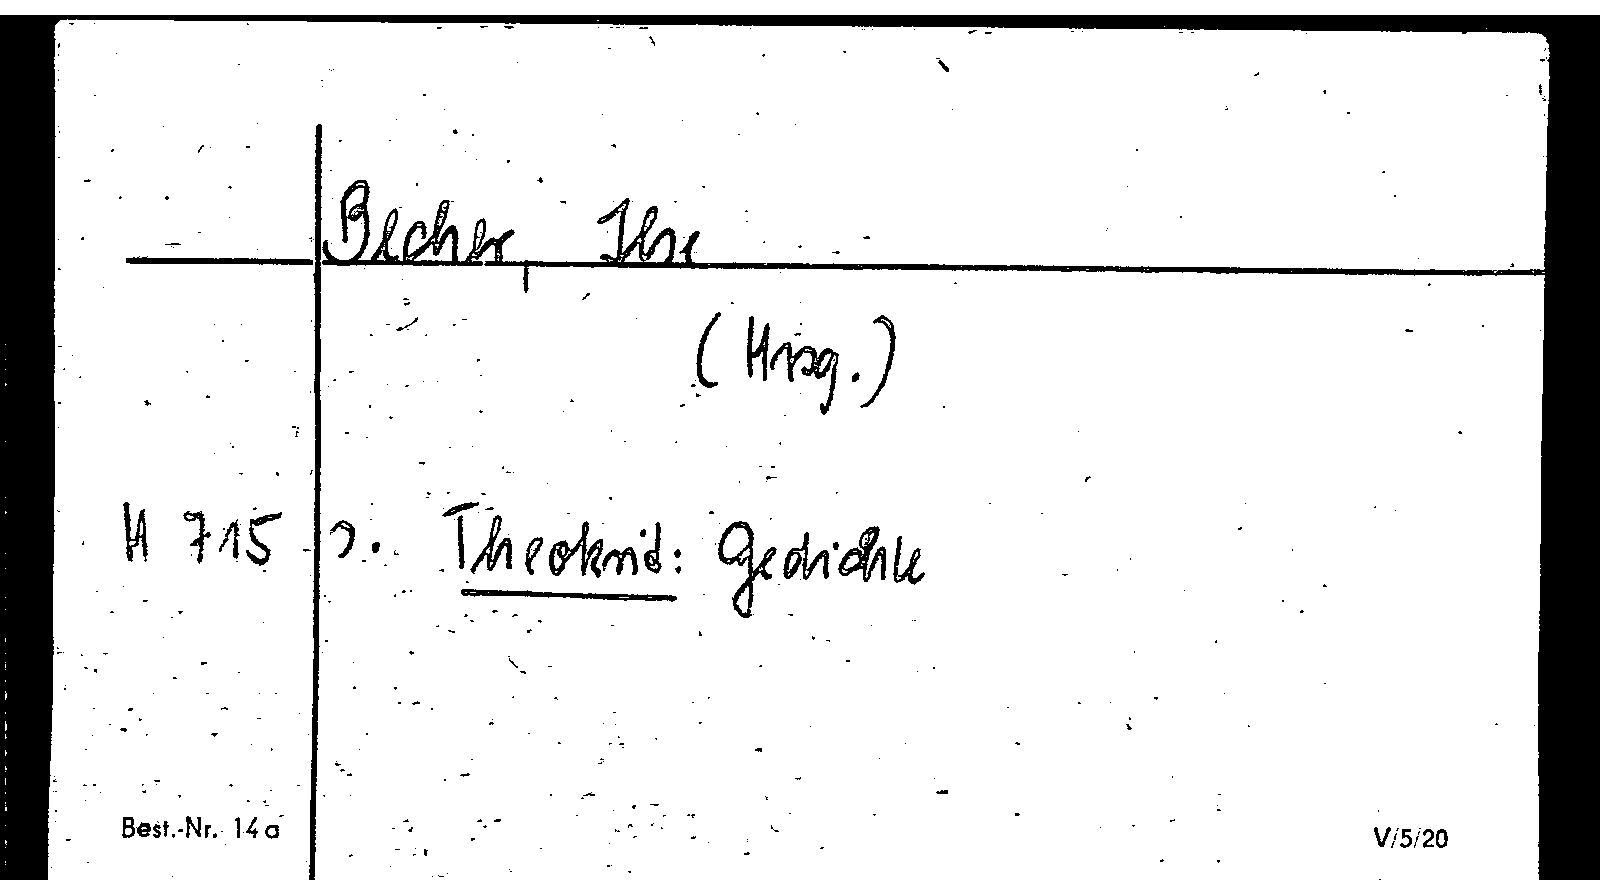 Becher, Ilse
(Hrsg.)
H 715 s. Theokrit: Gedichte
Best.-Nr. 14a
V/5/20